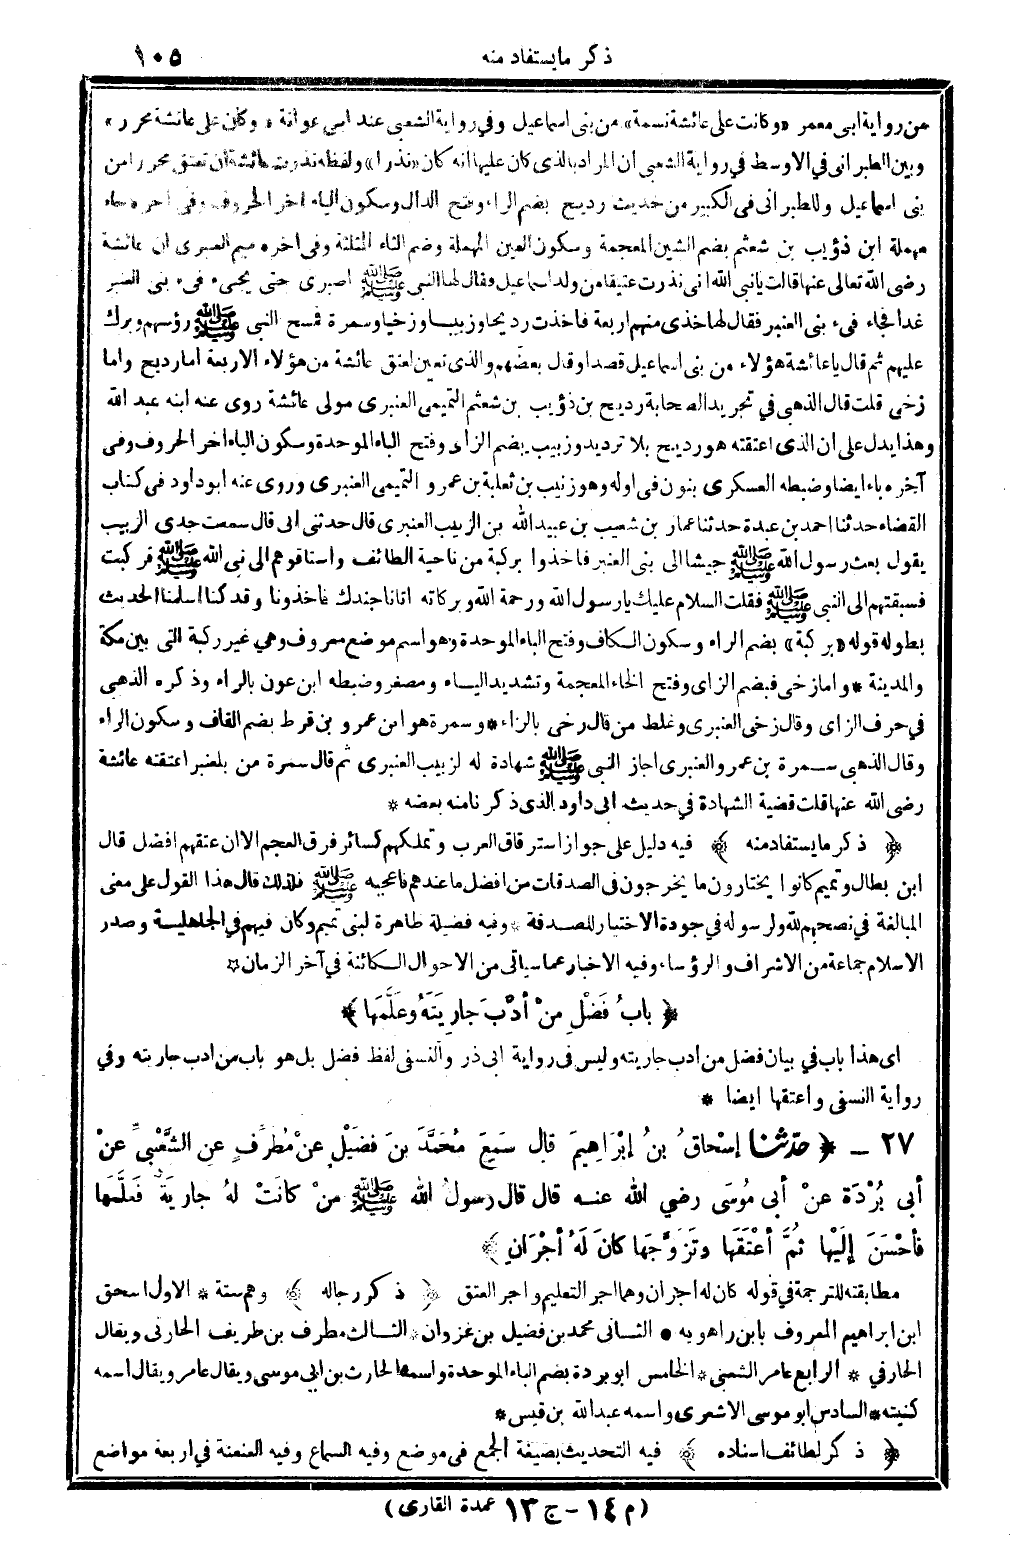 ذكر مايستفاد منه ١٠٥
من رواية ابى معمر «وكانت على عائشة نسمة» من بنى اسماعيل وفي رواية الشعبى عند ابى عوانة «وكان على عائشة محرر»
وبين الطبرانى في الاوسط في رواية الشعبى ان المراد بالذى كان عليها انه كان «نذرا» ولفظه نذرت عائشة ان تعتق محررا من
بنى اسماعيل وللطبرانى فى الكبير من حديث رديح بضم الراء وفتح الدال وسكون الياء اخر الحروف وفى اخره حاء
مهملة ابن ذؤيب بن شعثم بضم الشين المعجمة وسكون العين المهملة وضم الثاء المثلثة وفى اخره ميم العنبرى ان عائشة
رضى الله تعالى عنها قالت يانبى الله انى نذرت عتيقا من ولد اسماعيل فقال لها النبى ﷺ اصبرى حتى يجىء فىء بنى العنبر
غدا فجاء فىء بنى العنبر فقال لها خذى منهم اربعة فاخذت رديحا وزبيبا وزخيا وسمرة فمسح النبى ﷺ رؤسهم وبرك
عليهم ثم قال ياعائشة هؤلاء من بنى اسماعيل قصدا وقال بعضهم والذى تعين لعتق عائشة من هؤلاء الاربعة اما رديح واما
زخى قلت قال الذهبى في تجريد الصحابة رديح بن ذؤيب بن شعثم التميمى العنبرى مولى عائشة روى عنه ابنه عبد الله
وهذا يدل على ان الذى اعتقته هو رديح بلا ترديد وزبيب بضم الزاى وفتح الباء الموحدة وسكون الياء اخر الحروف وفى
آخره باء ايضا وضبطه العسكرى بنون فى اوله وهو زنيب بن ثعلبة بن عمرو التميمى العنبرى وروى عنه ابو داود فى كتاب
القضاء حدثنا احمد بن عبدة حدثنا عمار بن شعيب بن عبيد الله بن الزبيب العنبرى قال حدثنى ابى قال سمعت جدى الزبيب
يقول بعث رسول الله ﷺ جيشا الى بنى العنبر فاخذوا بركبة من ناحية الطائف واستاقوهم الى نبى الله ﷺ فركبت
فسبقتهم الى النبى ﷺ فقلت السلام عليك يارسول الله ورحمة الله وبركاته اتانا جندك فاخذونا وقد كنا اسلمنا الحديث
بطوله قوله «بركبة» بضم الراء وسكون الكاف وفتح الباء الموحدة وهو اسم موضع معروف وهي غير ركبة التى بين مكة
والمدينة * واما زخى فبضم الزاى وفتح الخاء المعجمة وتشديد الياء ومصغر وضبطه ابن عون بالراء وذكره الذهبى
في حرف الزاى وقال زخى العنبرى وغلط من قال رخى بالراء * وسمرة هو ابن عمرو بن قرط بضم القاف وسكون الراء
وقال الذهبى سمرة بن عمرو العنبرى اجاز النبى ﷺ شهادة له لزبيب العنبرى ثم قال سمرة من بلعنبر اعتقته عائشة
رضى الله عنها قلت قضية الشهادة في حديث ابى داود الذى ذكرنا منه بعضه *
﴿ ذكر مايستفاد منه ﴾ فيه دليل على جواز استرقاق العرب وتملكهم كسائر فرق العجم الا ان عتقهم افضل قال
ابن بطال وتميم كانوا يختارون ما يخرجون فى الصدقات من افضل ما عندهم فاعجبه ﷺ فلذلك قال هذا القول على معنى
المبالغة في نصحهم لله ولرسوله في جودة الاختيار للصدقة * وفيه فضيلة ظاهرة لبنى تميم وكان فيهم في الجاهلية وصدر
الاسلام جماعة من الاشراف والرؤساء وفيه الاخبار عما سياتى من الاحوال الكائنة في آخر الزمان *
﴿ بابُ فَضْلِ مِنْ أدَّبَ جارِيَتَهُ وعَلَّمَها ﴾
اى هذا باب في بيان فضل من ادب جاريته وليس فى رواية ابى ذر والنسفى لفظ فضل بل هو باب من ادب جاريته وفي
رواية النسفى واعتقها ايضا *
٢٧ _ ﴿ حدّثنا إسْحاقُ بنُ إبْرَاهِيمَ قال سَمِعَ مُحَمَّدَ بنَ فضَيْلٍ عنْ مُطَرِّفٍ عنِ الشَّعْبِيِّ عنْ
أبى بُرْدَةَ عنْ أبى مُوسَى رضي الله عنه قال قال رسولُ الله ﷺ منْ كانَتْ لهُ جارِيَةٌ فَعلَّمَها
فأحْسَنَ إلَيْها ثُمَّ أعْتَقَها وتَزَوَّجَها كانَ لَهُ أجْرَانِ ﴾
مطابقته للترجمة في قوله كان له اجران وهما اجر التعليم واجر العتق ﴿ ذكر رجاله ﴾ وهم ستة * الاول اسحق
ابن ابراهيم المعروف بابن راهويه * الثانى محمد بن فضيل بن غزوان * الثالث مطرف بن طريف الحارثى ويقال
الحارفي * الرابع عامر الشعبى * الخامس ابو بردة بضم الباء الموحدة واسمه الحارث بن ابي موسى ويقال عامر ويقال اسمه
كنيته * السادس ابو موسى الاشعرى واسمه عبد الله بن قيس *
﴿ ذكر لطائف اسناده ﴾ فيه التحديث بصيغة الجمع فى موضع وفيه السماع وفيه العنعنة في اربعة مواضع
(م ١٤ - ج ١٣ عمدة القارى)